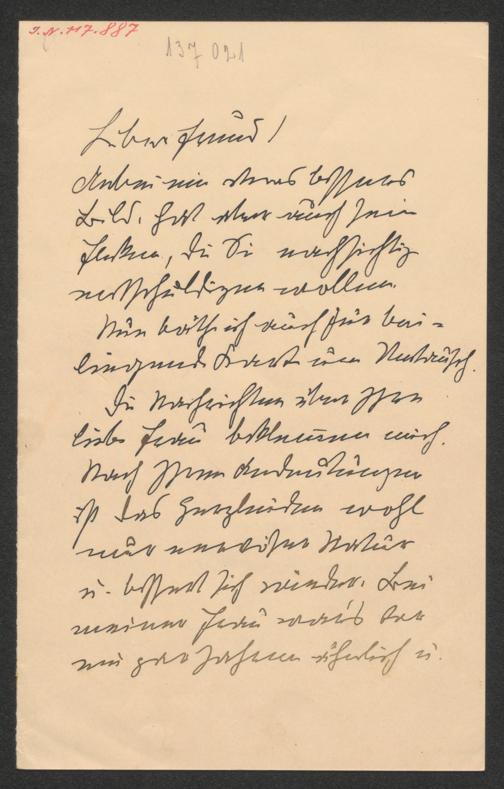 I.N. 117.887
137 021
Lieber Freund!
Anbei ein etwas besseres
Bild. Hat aber auch sein
Flecken, die Sie nachsichtig
entschuldigen wollen.
Nun bäthe ich auch für bei-
liegende Karte um Umtausch.
Die Nachrichten über Ihre
liebe Frau beklemmen mich.
Nach Ihren Andeutungen
ist das Herzleiden wohl
nur nervöser Natur
u. bessert sich wieder. Bei
meiner Frau war's vor
ein paar Jahren ähnlich u.